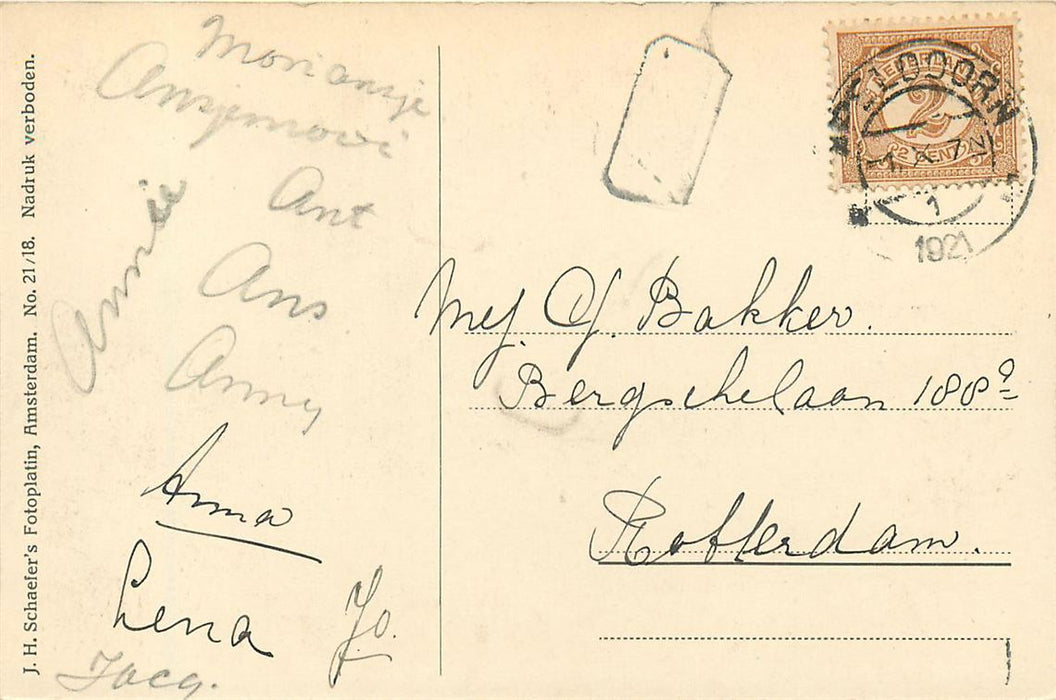 J. H. Schaefer's Fotoplatin, Amsterdam. No. 21/18. Nadruk verboden.
Ant
Annie
Ans
Anny
Anna
Lena
Jo.
Jacq.
2
2 CENT
1921
Mej. Bakker.
Bergschelaan 188
Rotterdam.